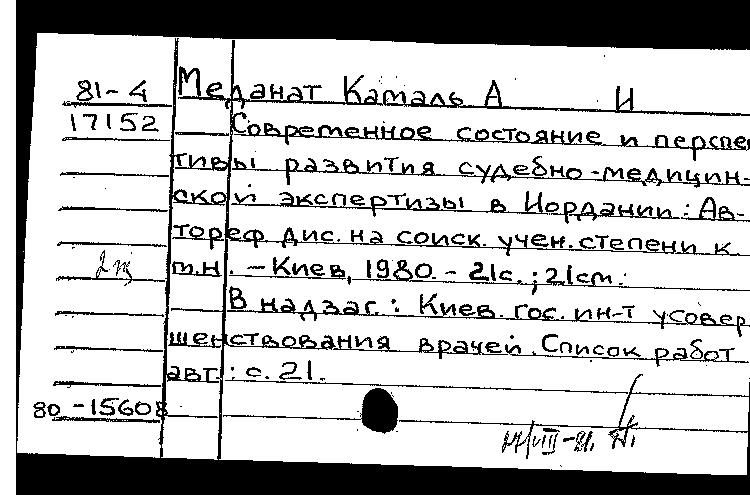 81-4 Меданат Камаль А И
17152 Современное состояние и перспе
тивы развития судебно-медицин-
ской экспертизы в Иордании: Ав-
тореф. дис. на соиск. учен. степени к.
м.н. - Киев, 1980. - 21с.; 21см.
В надзаг.: Киев. гос. ин-т усовер
шенствования врачей. Список работ
авт.: с. 21.
80-15608